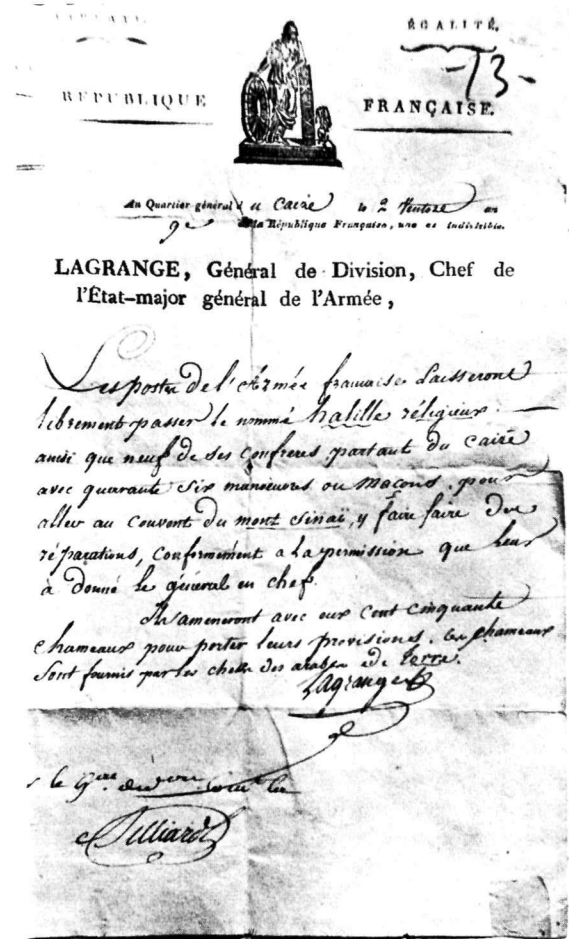 LIBERTÉ. ÉGALITÉ.
-13-
RÉPUBLIQUE FRANÇAISE.
Au Quartier-général d u Caire le 2 Ventose an
9e de la République Française, une et indivisible.
LAGRANGE, Général de Division, Chef de
l'État-major général de l'Armée,
Les postes de l'Armée francaise Laisseront
librement passer le nommé halille réligieux
ainsi que neuf de ses confreres partant du caire
avec quarante six manœuvres ou maçons, pour
aller au Couvent du mont sinaï, y faire faire des
réparations, conformement a La permission que leur
à donné le géneral en chef.
Ils ameneront avec eux cent cinquante
chameaux pour porter leurs provisiones. les chameaux
sont fournis par les cheks des arabes de terre.
Lagrange
Belliard